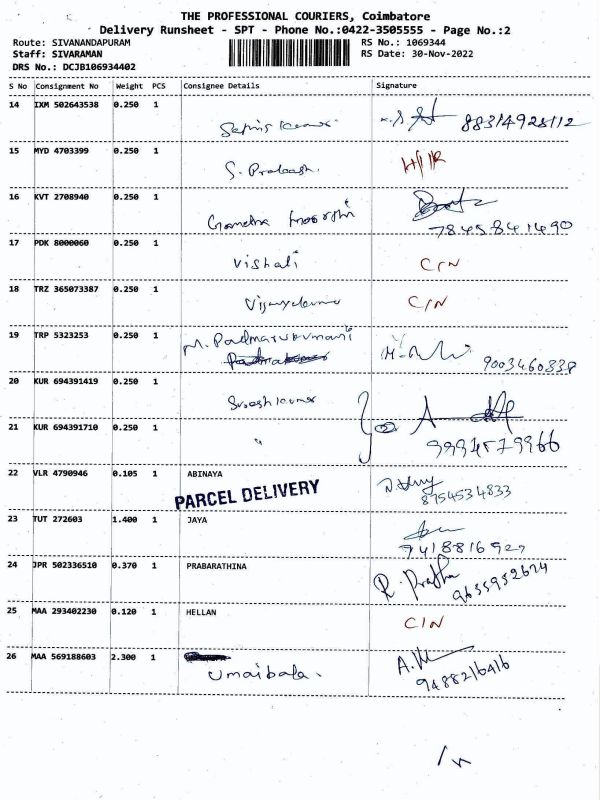 THE PROFESSIONAL COURIERS, Coimbatore
Delivery Runsheet - SPT - Phone No.:0422-3505555 - Page No.:2
Route: SIVANANDAPURAM RS No.: 1069344
Staff: SIVARAMAN RS Date: 30-Nov-2022
DRS No.: DCJB106934402
S No Consignment No Weight PCS Consignee Details Signature
14 IXM 502643538 0.250 1
88314928112
15 MYD 4703399 0.250 1
S. Prakash.
16 KVT 2708940 0.250 1
7845841490
17 PDK 8000060 0.250 1
Vishali C/N
18 TRZ 365073387 0.250 1
C/N
19 TRP 5323253 0.250 1
M. Padmarukumani
9003460338
20 KUR 694391419 0.250 1
Sureshkumar
21 KUR 694391710 0.250 1
" 9994579966
22 VLR 4790946 0.105 1 ABINAYA
PARCEL DELIVERY 8754534833
23 TUT 272603 1.400 1 JAYA
9418816927
24 JPR 502336510 0.370 1 PRABARATHINA
R. Pratha 9655952674
25 MAA 293402230 0.120 1 HELLAN
C/N
26 MAA 569188603 2.300 1
Umaibala.
9488216416